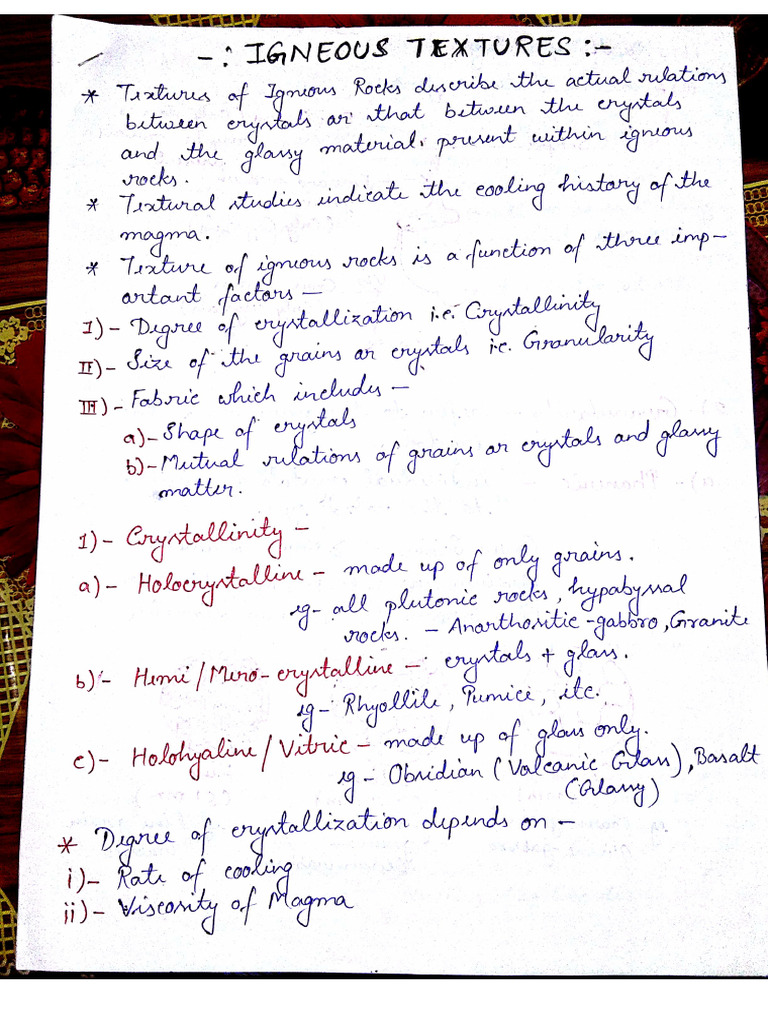 -: IGNEOUS TEXTURES :-
* Textures of Igneous Rocks describe the actual relations
between crystals or that between the crystals
and the glassy material, present within igneous
rocks.
* Textural studies indicate the cooling history of the
magma.
* Texture of igneous rocks is a function of three imp-
ortant factors -
I)- Degree of crystallization i.e. Crystallinity
II)- Size of the grains or crystals i.e. Granularity
III)- Fabric which includes -
a)- Shape of crystals
b)- Mutual relations of grains or crystals and glassy
matter.
1)- Crystallinity -
a)- Holocrystalline - made up of only grains.
eg- all plutonic rocks, hypabyssal
rocks. - Anorthositic-gabbro, Granite
b)- Hemi/Mero-crystalline - crystals + glass.
eg- Rhyollile, Pumice, etc.
c)- Holohyaline/Vitric - made up of glass only.
eg- Obsidian (Volcanic Glass), Basalt
(Glassy)
* Degree of crystallization depends on -
i)- Rate of cooling
ii)- Viscosity of Magma